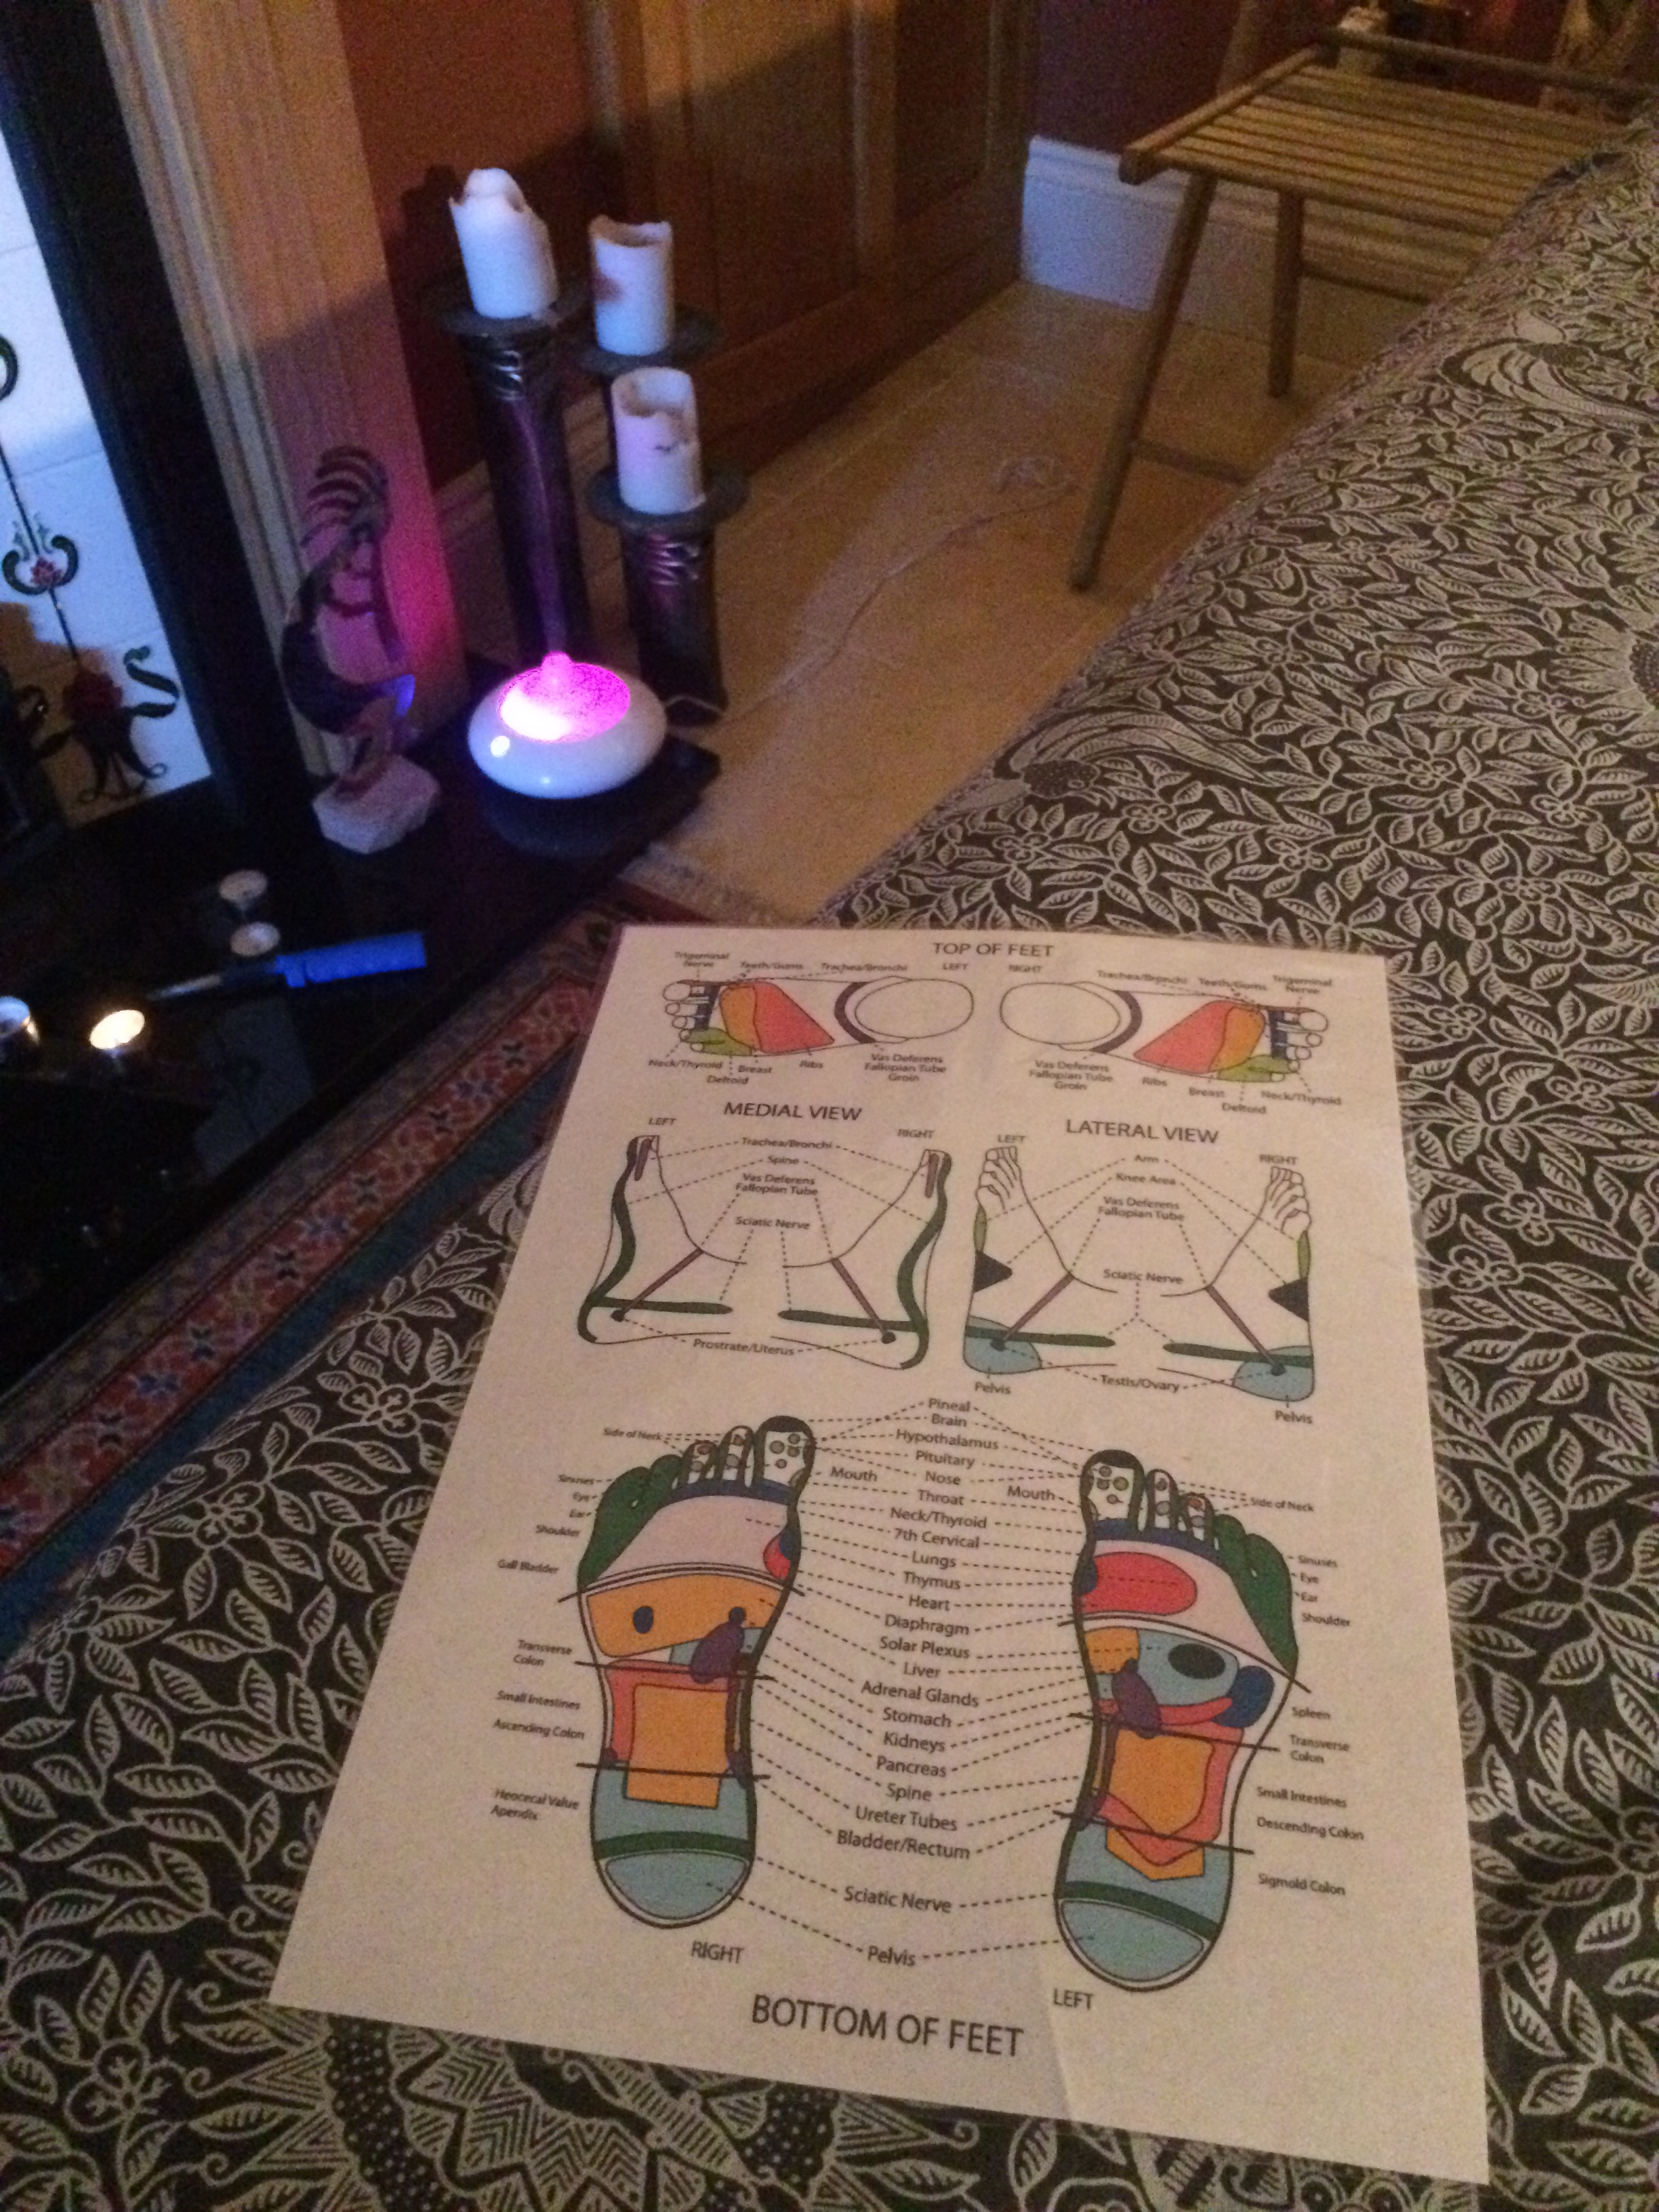 TOP OF FEET
Trigeminal
Nerve
Teeth/Gums
Trachea/Bronchi
LEFT
RIGHT
Trachea/Bronchi
Teeth/Gums
Trigeminal
Nerve
Neck/Thyroid
Deltoid
Breast
Ribs
Vas Deferens
Fallopian Tube
Groin
Vas Deferens
Fallopian Tube
Groin
Ribs
Breast
Deltoid
Neck/Thyroid
MEDIAL VIEW
LEFT
RIGHT
Trachea/Bronchi
Spine
Vas Deferens
Fallopian Tube
Sciatic Nerve
Prostrate/Uterus
LATERAL VIEW
LEFT
RIGHT
Arm
Knee Area
Vas Deferens
Fallopian Tube
Sciatic Nerve
Testis/Ovary
Pelvis
Pelvis
Side of Neck
Sinuses
Eye
Ear
Shoulder
Gall Bladder
Transverse
Colon
Small Intestines
Ascending Colon
Heocecal Value
Apendix
Pineal
Brain
Hypothalamus
Pituitary
Nose
Mouth
Mouth
Throat
Neck/Thyroid
7th Cervical
Lungs
Thymus
Heart
Diaphragm
Solar Plexus
Liver
Adrenal Glands
Stomach
Kidneys
Pancreas
Spine
Ureter Tubes
Bladder/Rectum
Sciatic Nerve
Pelvis
Side of Neck
Sinuses
Eye
Ear
Shoulder
Spleen
Transverse
Colon
Small Intestines
Descending Colon
Sigmold Colon
RIGHT
LEFT
BOTTOM OF FEET